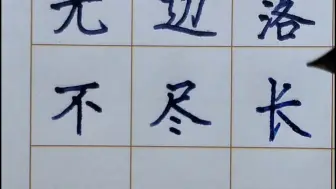 无边落
不尽长